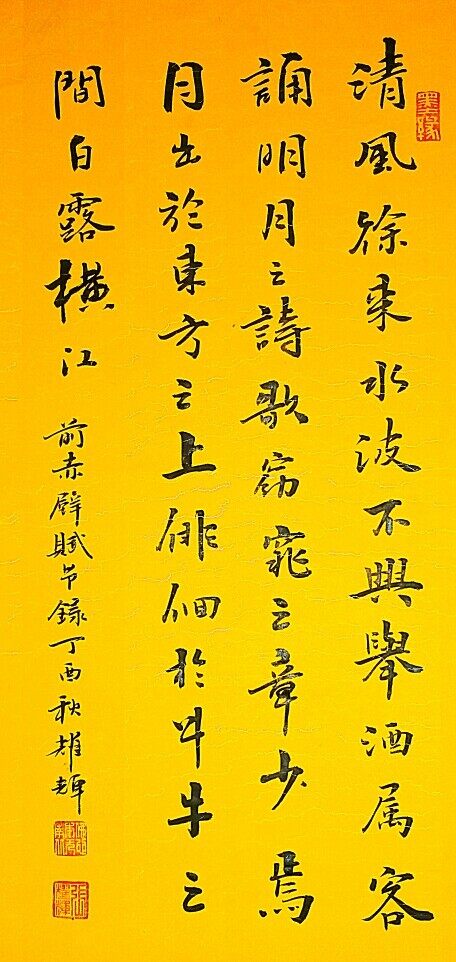 墨緣
清風徐来水波不興舉酒属客
誦明月之詩歌窈窕之章少焉
月出於東方之上俳佪於斗牛之
間白露橫江
前赤壁賦节錄丁酉秋雄輝